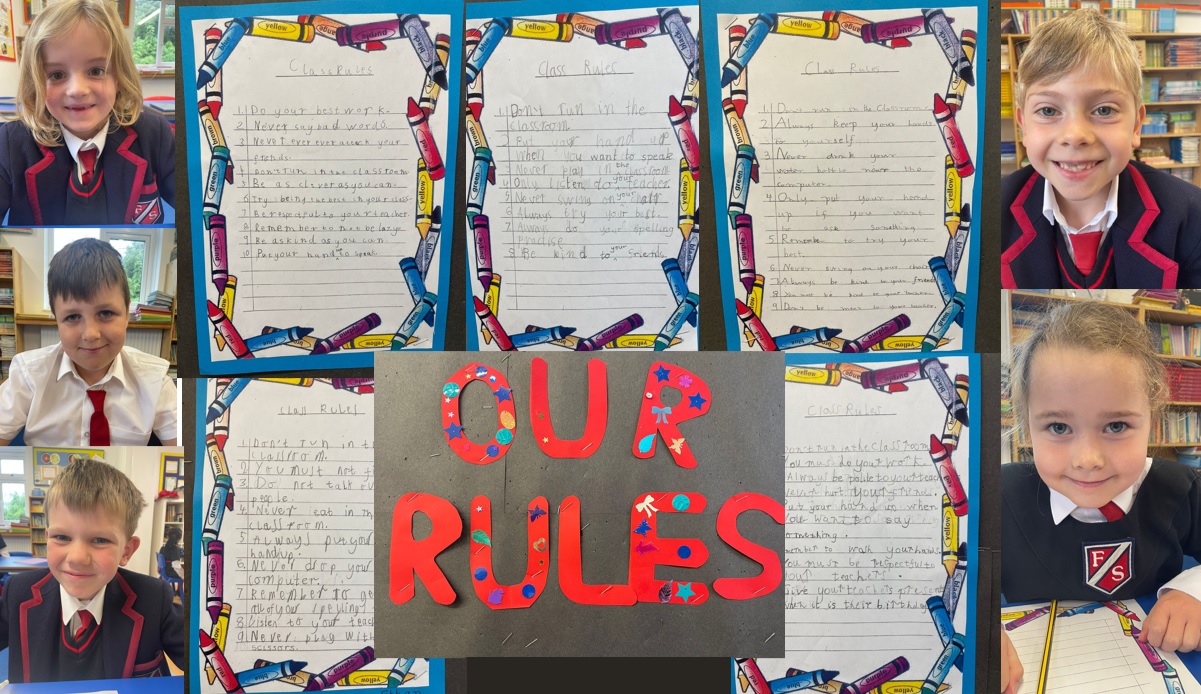 Class Rules
1 Do your best work.
2 Never say bad words.
3 Never ever ever attack your
friends.
4 Don't run in the classroom
5 Be as clever as you can.
6 Try being the best in your class
7 Be respectful to your teacher
8 Remember to not be large
9 Be as kind as you can.
10 Put your hand to speak.
Class Rules
1 Don't run in the
classroom
2 Put your hand up
when you want to speak
3 Never play in the classroom
4 Only listen to your teacher
5 Never swing on your chair
6 Always try your best.
7 Always do your spelling
practise
8 Be kind to your friends.
Class Rules
1 Don't run in the classroom
2 Always keep your hands
to yourself
3 Never drink your
water bottle near the
computer.
4 Only put your hand
up if you want
to ask something
5 Remember to try your
best.
6 Never swing on your chair
7 Always be kind to your friend
8 You must be kind to your
9 Don't be mean to your
Class Rules
1 Don't run in t
classroom.
2 You must not
3 Do not talk ov
people.
4 Never eat in m
classroom.
5 Always put you
hand up.
6 Never drop you
computer.
7 Remember to ge
all of your spellings
8 Listen to your teach
9 Never play with
scissors.
OUR
RULES
Class Rules
Don't run in the classroom
You must do your work
Always be polite to your teach
hurt your
Put your hand up when
you want to say
something.
member to wash your hands
You must be respectful to
your teachers.
Give your teachers
when it is their birthday
FS
FS